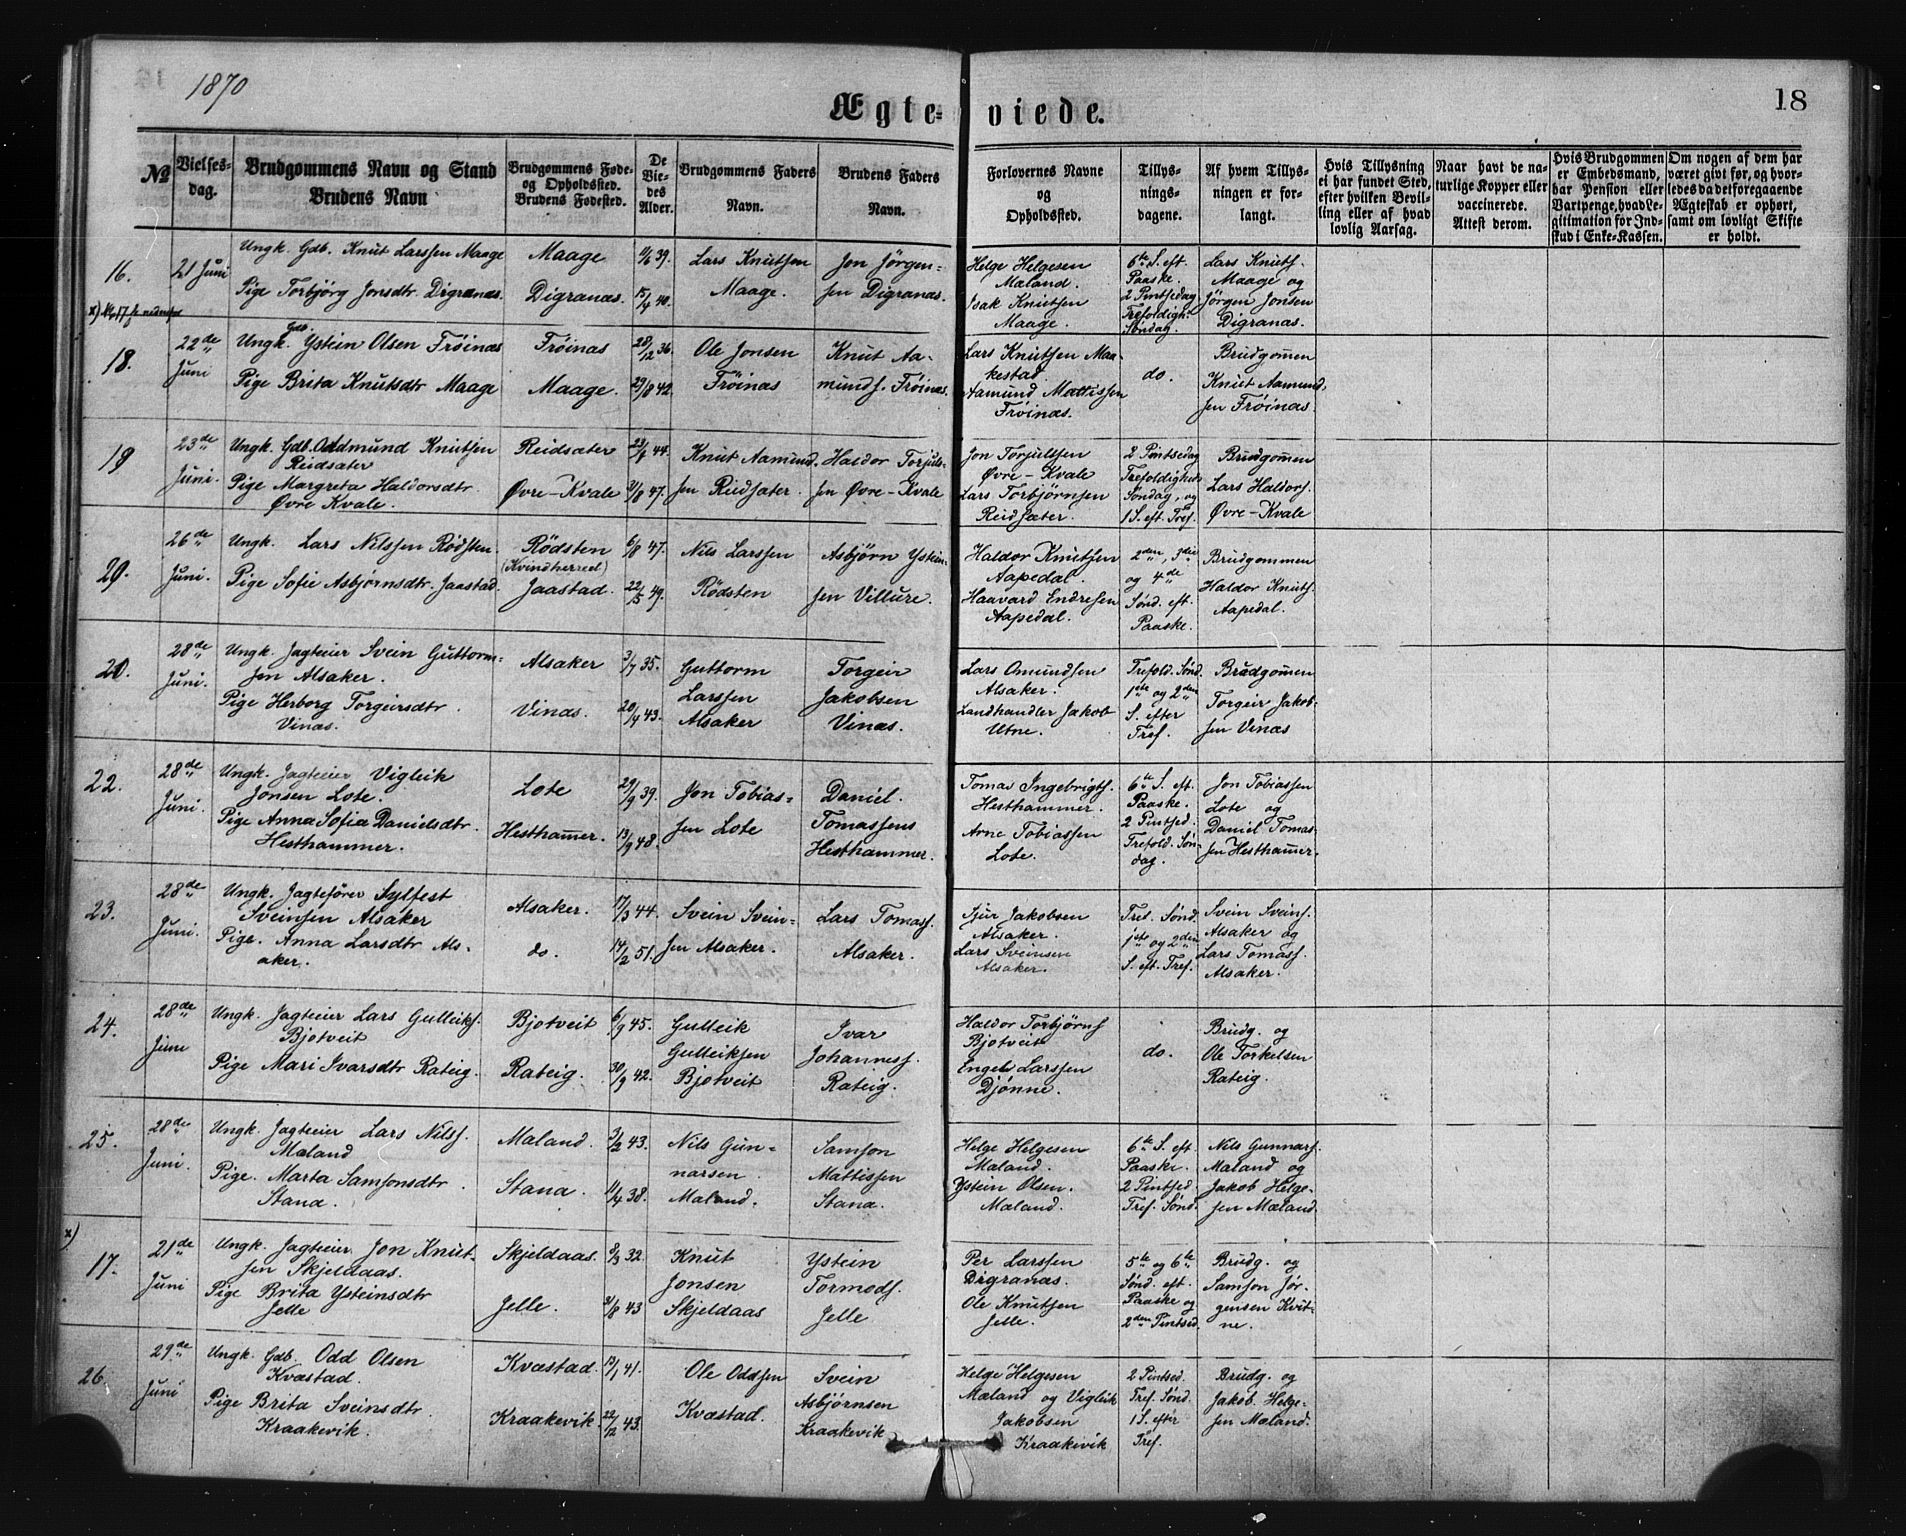 1870
18
Ægteviede.
№
Vielses-
dag.
Brudgommens Navn og Stand
Brudens Navn
Brudgommens Føde-
og Opholdssted.
Brudens Fødested.
De
Vie-
des
Alder.
Brudgommens Faders
Navn.
Brudens Faders
Navn.
Forlovernes Navne
og
Opholdssted.
Tillys-
nings-
dagene.
Af hvem Tillys-
ningen er for-
langt.
Hvis Tillysning
ei har fundet Sted,
efter hvilken Bevil-
ling eller af hvad
lovlig Aarsag.
Naar havt de na-
turlige Kopper eller
vaccinerede.
Attest derom.
Hvis Brudgommen
er Embedsmand,
har Pension eller
Vartpenge, hvad Le-
gitimation for Ind-
skud i Enke-Kassen.
Om nogen af dem har
været givt før, og hvor-
ledes da det foregaaende
Ægteskab er ophørt,
samt om lovligt Skifte
er holdt.
16.
21 Juni
Ungk. Gdb. Knut Larssen Maage
Pige Torbjörg Jonsdtr. Digranæs.
Maage
Digranæs.
39.
15/4 40.
Lars Knutsen
Maage.
Jon Jörgen-
sen Digranæs.
Helge Helgesen
Mæland.
Isak Knutsen
Maage.
6te S. eft.
Paaske.
2 Pintsedag
Trefoldigh.
Søndag.
Lars Knuts.
Maage og
Jörgen Jonsen
Digranæs.
x) No 17 se nedenfor
18.
22de
Juni
Ungk. Gdb. Ystein Olsen Fröinæs
Pige Brita Knutsdtr Maage
Fröinæs
Maage.
28/12 36.
29/8 42.
Ole Jonsen
Fröinæs
Knut Aa-
munds. Fröinæs.
Lars Knutsen Maa-
kestad
Aamund Mattissen
Fröinæs.
do.
Brudgommen
Knut Aamund-
sen Fröinæs.
19
23de
Juni.
Ungk. Gdb. Oddmund Knutsen
Reidsæter
Pige Margreta Haldorsdtr.
Øvre Kvale.
Reidsæter
Øvre-Kvale
44.
3/8 47.
Knut Aamund-
sen Reidsæter.
Haldor Torjuls-
sen Øvre-Kvale
Jon Torjulssen
Øvre-Kvale
Lars Torbjörnsen
Reidsæter.
2 Pintsedag
Trefoldigheds
Søndag, og
1 S. eft. Tref.
Brudgommen
Lars Haldors.
Øvre-Kvale
20.
26de
Juni.
Ungk. Lars Nilssen Rödsten.
Pige Sofie Asbjörnsdtr. Jaastad.
Rödsten
(Kvindherred)
Jaastad.
6/8 47.
22/5 49.
Nils Larssen
Rödsten
Asbjörn Ystein-
sen Villure.
Haldor Knutsen
Aapedal.
Haavard Endresen
Aapedal.
2den, 3die
og 4de
Sönd. eft.
Paaske.
Brudgommen
Haldor Knuts.
Aapedal.
20.
28de
Juni.
Ungk. Jagteier Svein Guttorm-
sen Alsaker.
Pige Herborg Torgeirsdtr.
Vinæs.
Alsaker
Vinæs.
3/7 35.
20/4 43.
Guttorm
Larssen
Alsaker
Torgeir
Jakobsen
Vinæs.
Lars Omundsen
Alsaker.
Landhandler Jakob
Utne.
Trefold. Sönd.
1ste og 2den
S. efter
Tref.
Brudgommen
Torgeir Jakob-
sen Vinæs
22.
28de
Juni.
Ungk. Jagteier Vigleik
Jonsen Lote.
Pige Anna Sofia Danielsdtr.
Hesthammer.
Lote
Hesthammer.
29/9 39.
13/9 48.
Jon Tobias-
sen Lote
Daniel
Tomassens
Hesthammer.
Tomas Ingebrigts.
Hesthammer.
Arne Tobiassen
Lote.
6te S. eft.
Paaske.
2 Pintsed.
Trefold. Søn-
dag.
Jon Tobiassen
Lote og
Daniel Tomas-
sen Hesthammer.
23.
28de
Juni.
Ungk. Jagtefører Sylfest
Sveinsen Alsaker
Pige. Anna Larsdtr Als-
aker.
Alsaker.
do.
17/3 44.
14/2 51.
Svein Svein-
sen Alsaker.
Lars Tomass.
Alsaker.
Sjur Jakobsen
Alsaker.
Lars Sveinsen
Alsaker.
Tref. Sønd.
1ste og 2den
S. eft. Tref.
Svein Sveins.
Alsaker og
Lars Tomass.
Alsaker.
24.
28de
Juni
Ungk. Jagteier Lars Gulleiks.
Bjotveit
Pige Mari Ivarsdtr Rateig.
Bjotveit
Rateig.
6/9 45.
30/9 42.
Gulleik
Gulleiksen
Bjotveit
Ivar
Johanness.
Rateig.
Haldor Torbjørns
Bjotveit
Engel Larssen
Djönne.
do.
Brudg. og
Ole Torkelsen
Rateig.
25.
28de
Juni.
Ungk. Jagteier Lars Nilss.
Mæland
Pige. Marta Samsonsdtr.
Stana.
Mæland.
Stana.
3/2 43.
11/4 38.
Nils Gun-
narsen
Mæland.
Samson
Mattissen
Stana.
Helge Helgesen
Mæland.
Ystein Olsen.
Mæland.
6te S. eft.
Paaske.
2 Pintsed.
Tref. Sönd.
Nils Gunnars.
Mæland og
Jakob Helge-
sen Mæland.
x)
17.
21de
Juni
Ungk. Jagteier Jon Knut-
sen Skjeldaas.
Pige Brita Ysteinsdtr
Jelle
Skjeldaas.
Jelle.
8/3 32.
31/8 43
Knut
Jonsen
Skjeldaas
Ystein
Tormods.
Jelle
Per Larssen
Digranæs.
Ole Knutsen
Jelle.
5te og 6te
Sønd. eft.
Paaske og
2den Pintsed.
Brudg. og
Samson Jör-
gensen Kvit-
ne.
26.
29de
Juni
Ungk. Gdb. Odd Olsen
Kvæstad.
Pige Brita Sveinsdtr.
Kraakevik.
Kvæstad.
Kraakevik.
13/1 41.
22/12 43.
Ole Oddsen
Kvæstad.
Svein
Asbjörnsen
Kraakevik
Helge Helgesen
Mæland og Vigleik
Jakobsen
Kraakevik
2 Pintsed.
Tref. Sönd.
1 S. efter
Tref.
Brudg. og
Jakob. Helge-
sen Mæland.